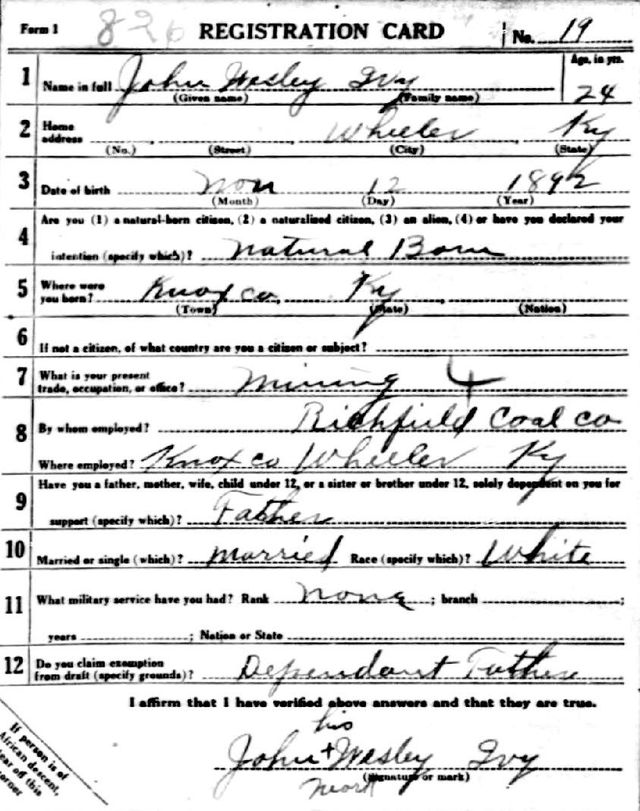 Form 1 826 REGISTRATION CARD No. 19
1 Name in full John Wesley Ivy Age, in yrs. 24
(Given name) (Family name)
2 Home address Wheeler Ky
(No.) (Street) (City) (State)
3 Date of birth Nov 12 1892
(Month) (Day) (Year)
4 Are you (1) a natural-born citizen, (2) a naturalized citizen, (3) an alien, (4) or have you declared your
intention (specify which)? Natural Born
5 Where were you born? Knox co, Ky
(Town) (State) (Nation)
6 If not a citizen, of what country are you a citizen or subject?
7 What is your present trade, occupation, or office? Mining 4
8 By whom employed? Richfield Coal co
Where employed? Knox co Wheeler Ky
9 Have you a father, mother, wife, child under 12, or a sister or brother under 12, solely dependent on you for
support (specify which)? Father
10 Married or single (which)? Married Race (specify which)? White
11 What military service have you had? Rank None ; branch ;
years ; Nation or State
12 Do you claim exemption from draft (specify grounds)? Dependant Father
I affirm that I have verified above answers and that they are true.
his
John + Wesley Ivy
(Signature or mark)
mark
If person is of
African descent,
tear off this
corner